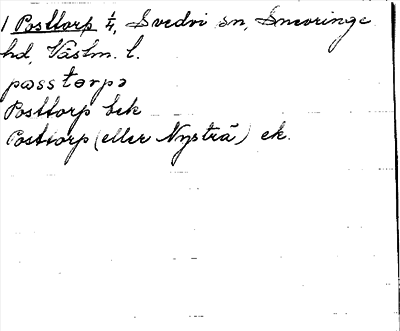 1 Posttorp 1/4, Svedvi sn, Snevringe
hd, Västm. l.
påsstərpə
Posttorp bek
Posttorp (eller Nysträ) ek.